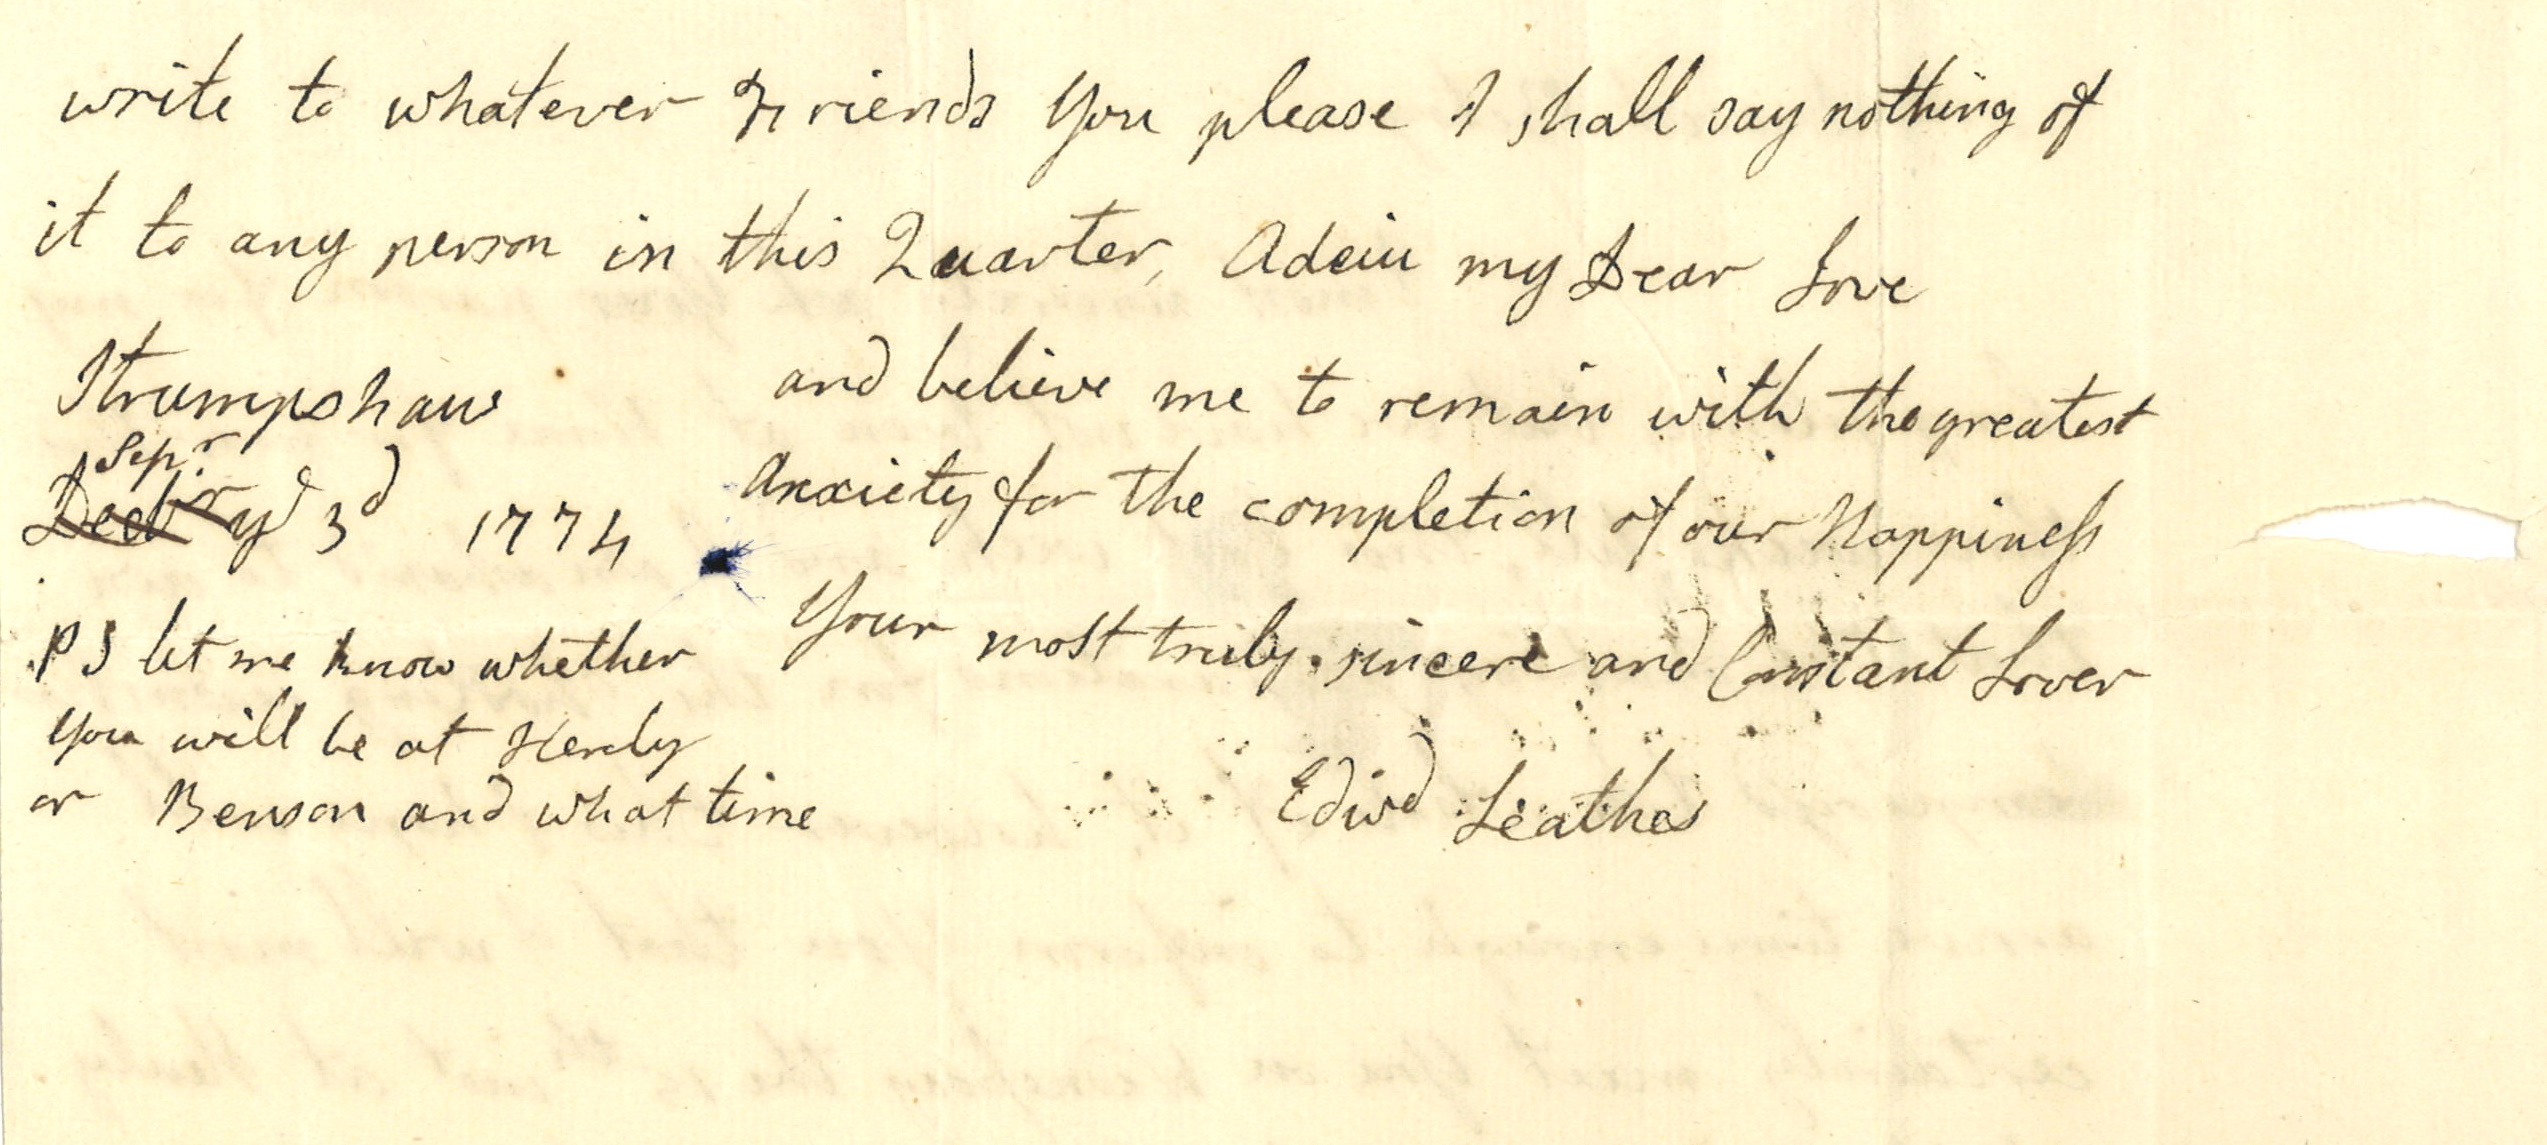 write to whatever Friends you please I shall say nothing of
it to any person in this Quarter, Adeiu my Dear Love
and believe me to remain with the greatest
Anxiety for the completion of our Happiness
Your most truly sincere and Constant Lover
Edwd Leathes
Strumpshaw
Sepr
Decbr yd 3d 1774
PS let me know whether
you will be at Henly
or Benson and what time